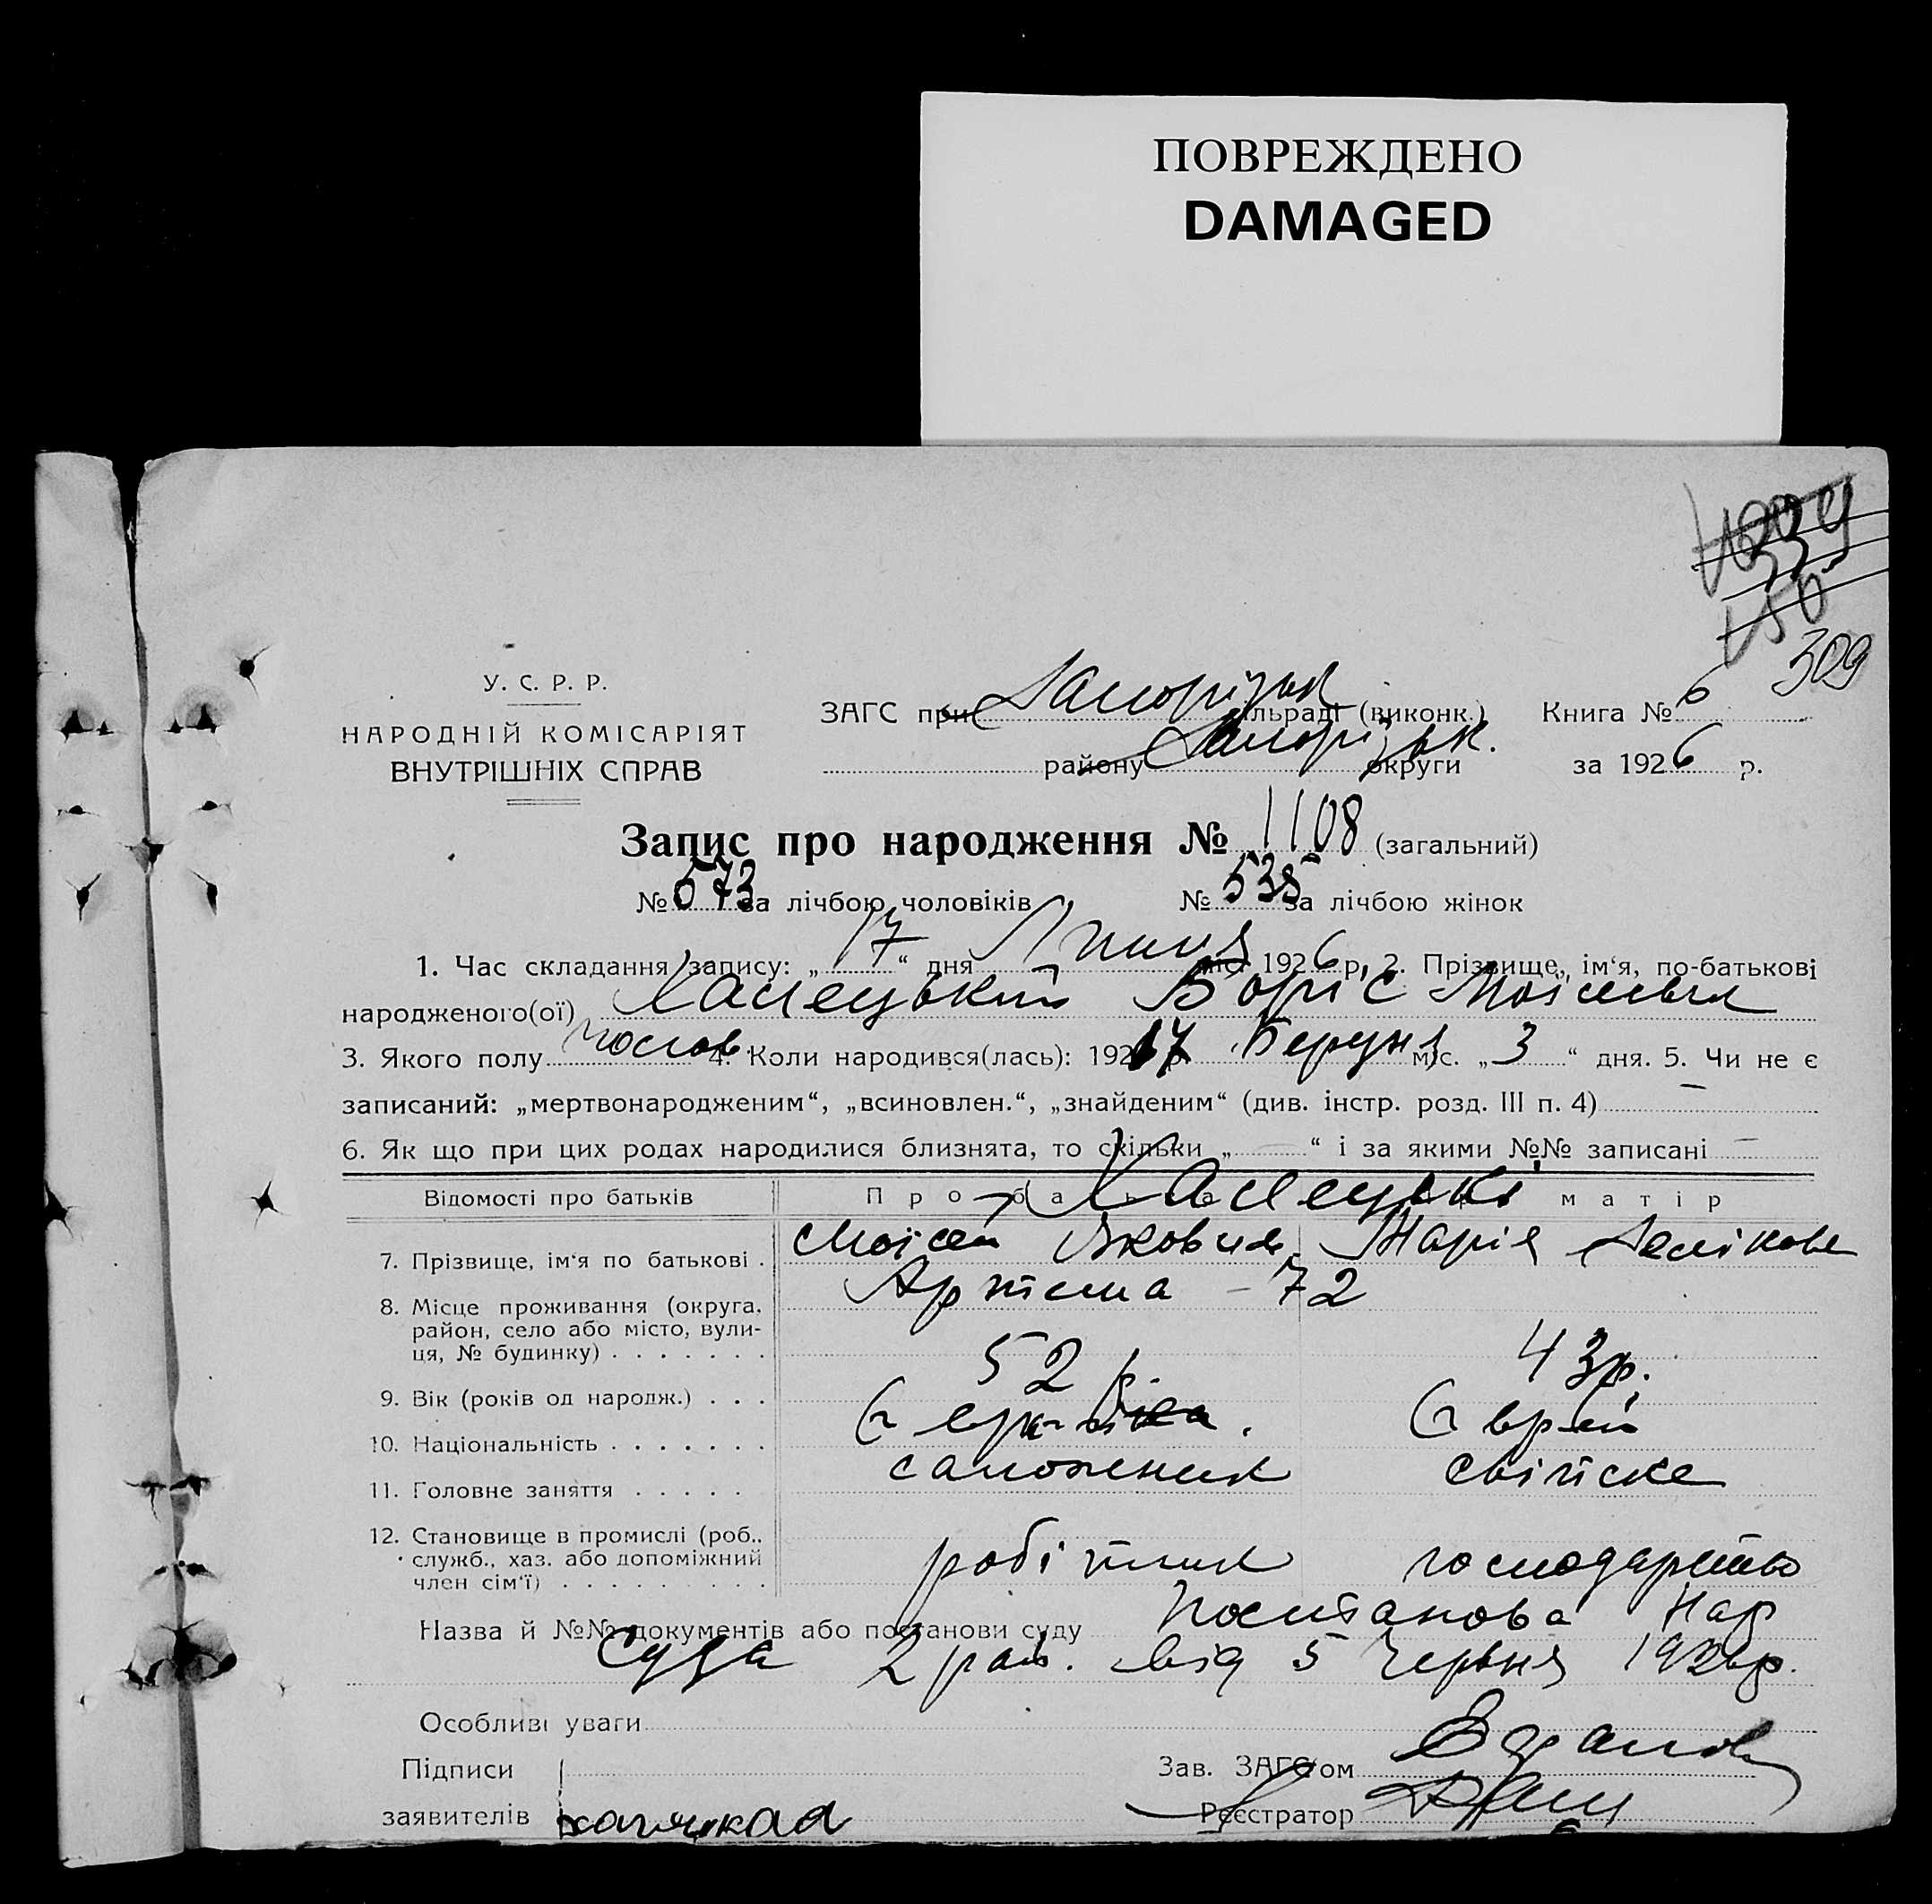 ПОВРЕЖДЕНО
DAMAGED
309
У. С. Р. Р.
НАРОДНІЙ КОМІСАРІЯТ
ВНУТРІШНІХ СПРАВ
ЗАГС при Запорізьк сільраді (виконк.) Книга № 6
району Запорізьк. округи за 1926 р.
Запис про народження № 1108 (загальний)
№ 573 за лічбою чоловіків № 535 за лічбою жінок
1. Час складання запису: „17“ дня Липня міс. 1926 р. 2. Прізвище, ім‘я, по-батькові
народженого(ої) Халецький Боріс Моісеевич
3. Якого полу чолов. 4. Коли народився(лась): 1917 р. Березня міс. „3“ дня. 5. Чи не є
записаний: „мертвонародженим“, „всиновлен.“, „знайденим“ (див. інстр. розд. III п. 4) —
6. Як що при цих родах народилися близнята, то скільки „—“ і за якими №№ записані —
Відомості про батьків Про батька Про матір
Халецькі
7. Прізвище, ім‘я по батькові . Моісей Якович Марія
8. Місце проживання (округа, район, село або місто, вулиця, № будинку) . . . . . . . Артема – 72
9. Вік (років од народж.) . . . 52 р. 43 р.
10. Національність . . . . . . . Еврей
11. Головне заняття . . . . . сапожник свійске
12. Становище в промислі (роб., служб., хаз. або допоміжний член сім‘ї) . . . . . . . . . робітник господарство
Назва й №№ документів або постанови суду Постанова Нар
Суда 2 рай. від 5 Червня 1926 р.
Особливі уваги
Підписи Зав. ЗАГС‘ом
заявителів Реєстратор